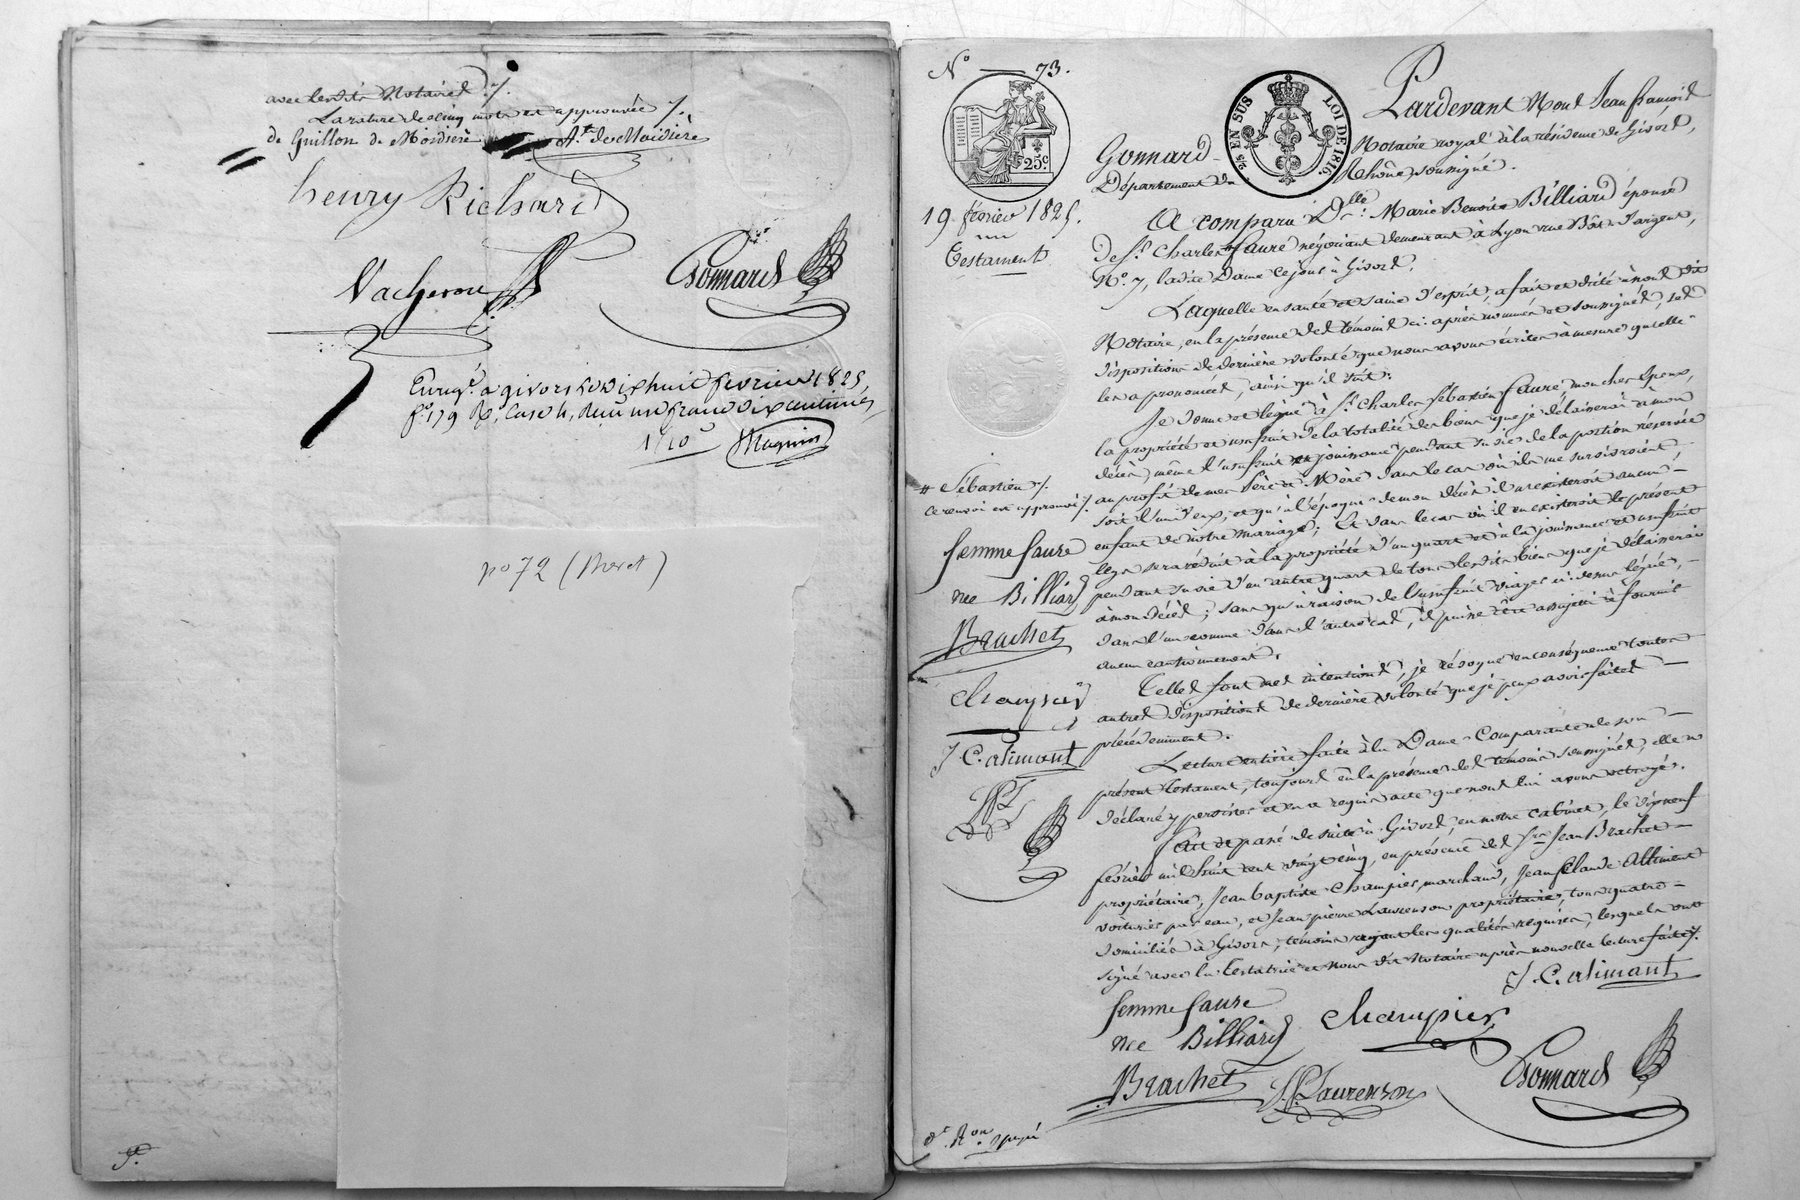 avec lesdits Notaires ./.
La rature de cinq mots est approuvée ./.
de Guillon de Moidiere A.te de Moidiere
henry Richard
Vacheron
Gonnard
Enreg.é a givors le dix huit fevrier 1825,
f.o 179 R.o Case 4, reçu un franc dix centimes
1f 10c Magnin
no 72 (Meret)
N.o 73.
25c
2/5 EN SUS LOI DE 1816.
19 février 1825.
Testament
Pardevant Nous Jean François
Gonnard Notaire royal à la résidence de Givors,
Département du Rhône, soussigné.
A comparu D.lle Marie Benoite Billiard épouse
de S.r Charles # Faure négociant demeurant à Lyon rue Bât-d'argent,
N.o 7, ladite Dame ce jour à Givors,
Laquelle en santé et saine d'esprit, a fait et dicté à nous dit
Notaire, en la présence des témoins ci-après nommés et soussignés, ses
dispositions de dernière volonté que nous avons écrites à mesure qu'elle
les a prononcées, ainsi qu'il suit:
Je donne et lègue à S.r Charles Sébastien Faure mon cher époux,
la propriété et usufruit de la totalité des biens que je délaisserai à mon
décès, même l'usufruit et jouissance pendant sa vie de la portion réservée
au profit de mes Père et Mère dans le cas où ils me survivroient
soit l'un d'eux, et qu'à l'époque de mon décès il n'existeroit aucun
enfant de notre mariage; Et dans le cas où il en existeroit le présent
legs sera réduit à la propriété d'un quart et à la jouissance et usufruit
pendant sa vie d'un autre quart de tous lesdits biens que je délaisserai
à mon décès; sans qu'à raison de l'usufruit viager ci-dessus légué,
dans l'un comme dans l'autre cas, il puisse être assujetti à fournir
aucun cautionnement.
Telles sont mes intentions, je révoque en conséquence toutes
autres dispositions de dernière volonté que je peux avoir faites
précédemment.
Lecture entière faite à la Dame Comparante de son
présent testament, toujours en la présence des témoins soussignés, elle a
déclaré y persister et en a requis acte que nous lui avons octroyé.
Fait et passé de suite à Givors, en notre cabinet, le dix neuf
février mil huit cent vingt cinq, en présence des S.rs Jean Brachet
propriétaire, Jean Baptiste Champier, marchand, Jean Claude Alliment
voiturier par eau, et Jean pierre Laurenson propriétaire, tous quatre
domiciliés à Givors, témoins ayant les qualités requises, lesquels ont
signé avec la testatrice et nous dit Notaire après nouvelle lecture faite ./.
# Sébastien ./.
ce renvoi est approuvé ./.
femme faure
nee Billiard
Brachet
Champier
J C. alimant
J. C. alimant
femme faure
nee Billiard
Champier
Gonnard
Brachet
J.P. Laurenson